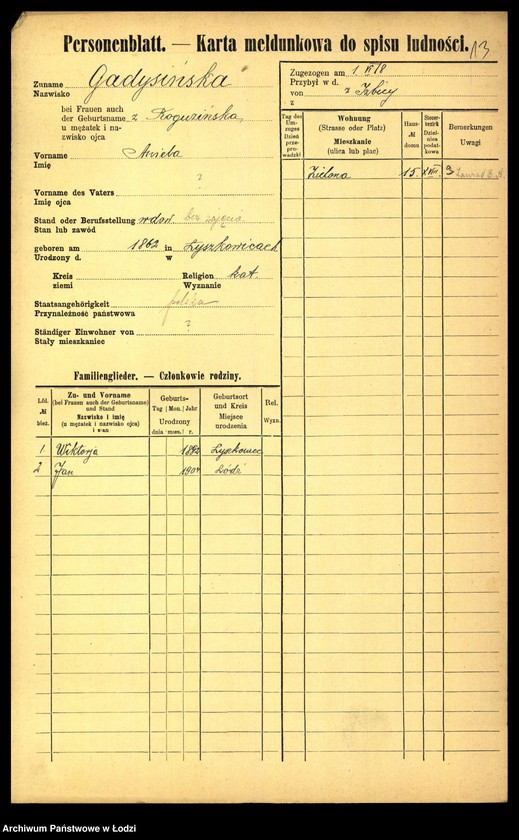 Personenblatt. — Karta meldunkowa do spisu ludności.
13
Zuname
Nazwisko
Gadysińska
bei Frauen auch
der Geburtsname
u mężatek i na-
zwisko ojca
z Roguzińska
Vorname
Imię
Aniela
Vorname des Vaters
Imię ojca
?
Stand oder Berufsstellung
Stan lub zawód
wdow. bez zajęcia
geboren am 1862 in Łyszkowicach
Urodzony d. w
Kreis
ziemi
Religion
Wyznanie
kat.
Staatsangehörigkeit
Przynależność państwowa
polska
Ständiger Einwohner von
Stały mieszkaniec
?
Familienglieder. — Członkowie rodziny.
Lfd.
№
bież.
Zu- und Vorname
(bei Frauen auch der Geburtsname)
und Stand
Nazwisko i imię
(u mężatek i nazwisko ojca)
i stan
Geburts-
Tag | Mon. | Jahr
Urodzony
dnia | mies. | r.
Geburtsort
und Kreis
Miejsce
urodzenia
Rel.
Wyzn.
1 Wiktorja 1892 Łyszkowic
2 Jan 1904 Łódź
Zugezogen am
Przybył w d.
1 VI 18
von
z
z Izbicy
Tag des
Um-
zuges
Dzień
prze-
prowadzki
Wohnung
(Strasse oder Platz)
Mieszkanie
(ulica lub plac)
Haus-
№
domu
Steuer-
bezirk
Dziel-
nica
podat-
kowa
Bemerkungen
Uwagi
Zielona 15.
Archiwum Państwowe w Łodzi